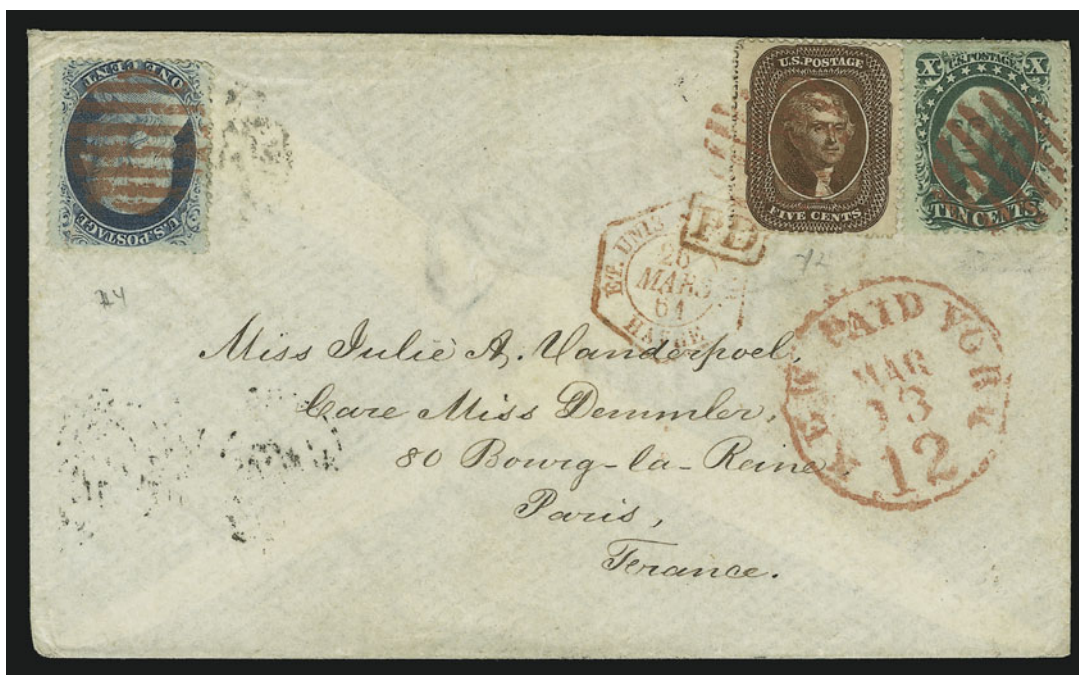 ONE CENT
U.S. POSTAGE
U.S. POSTAGE
FIVE CENTS
X U.S. POSTAGE X
TEN CENTS
PD
ET. UNIS
26
MARS
61
HAVRE
NEW PAID YORK
MAR
13
12
Miss Julie A. Vanderpoel,
Care Miss Demmler,
80 Bourg-la-Reine
Paris,
France.